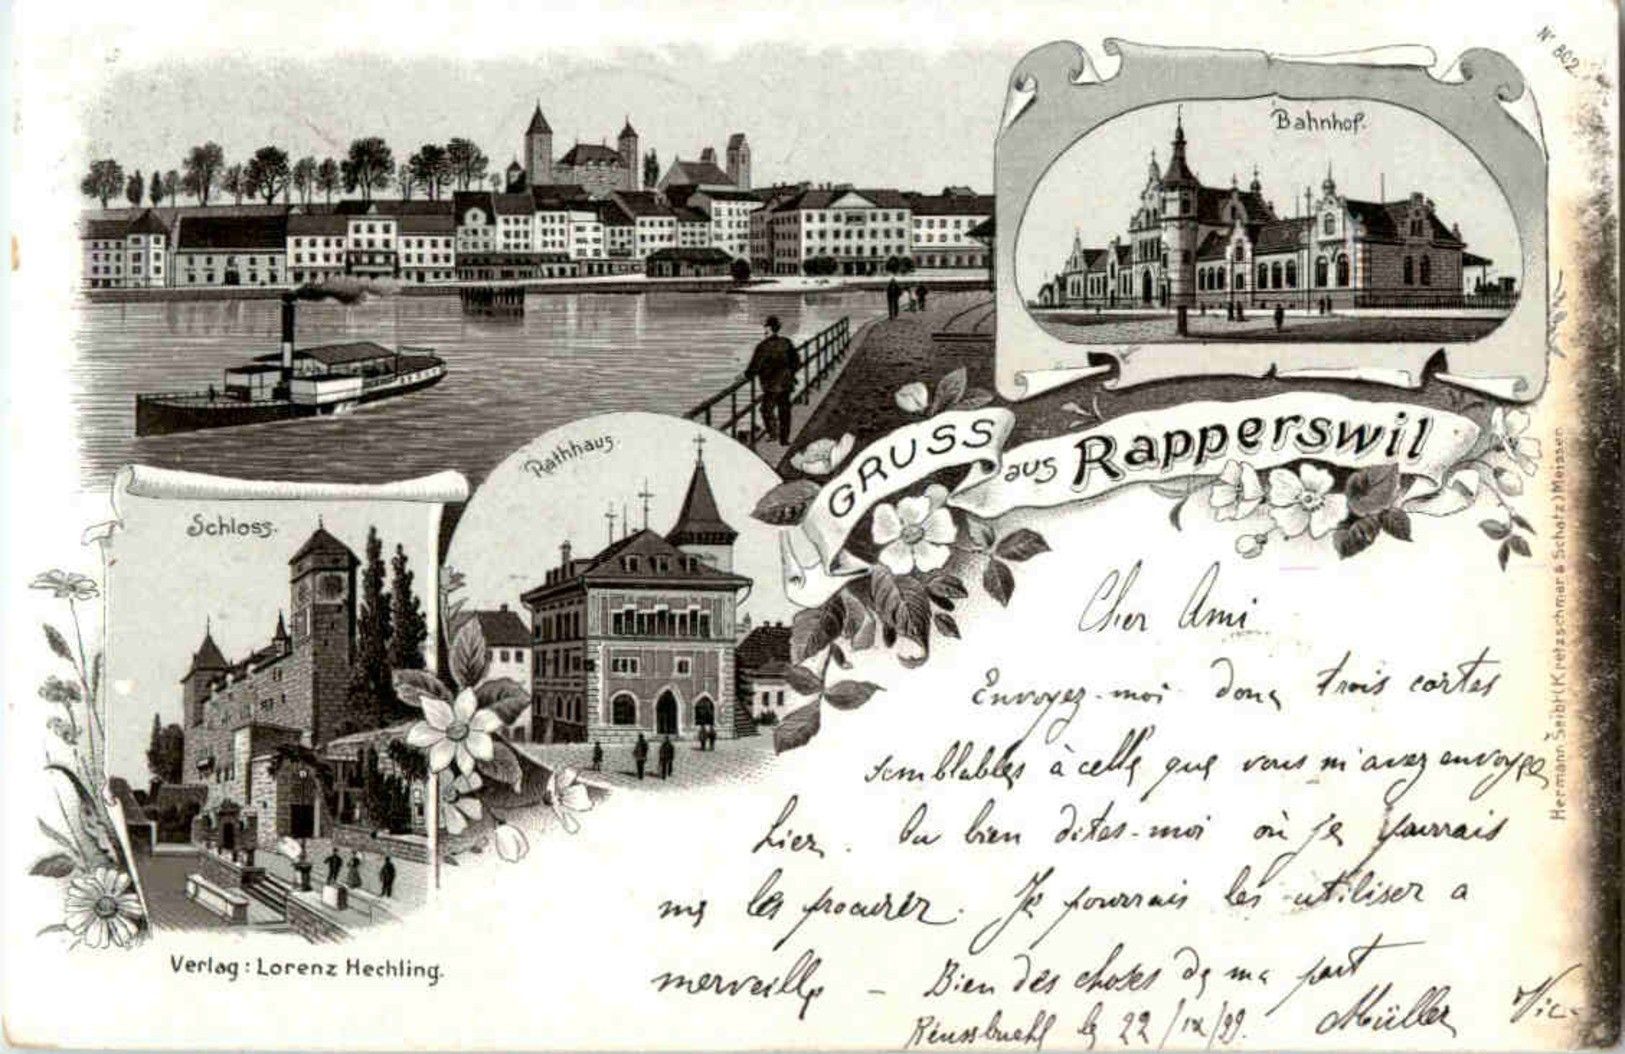 Nº 802
Bahnhof.
GRUSS aus Rapperswil
Rathhaus.
Schloss.
Hermann Seibt (Kretzschmar & Schatz) Meissen
Cher Ami
Envoyez-moi donc trois cartes
semblables à celle que vous m'avez envoyée
hier. Ou bien dites-moi où je pourrais
me les procurer. Je pourrais les utiliser a
merveille – Bien des choses de ma part
Reussbuehl le 22/IX/99. Müller Vic.
Verlag: Lorenz Hechling.